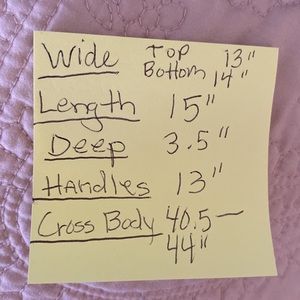 Wide Top 13"
Bottom 14"
Length 15"
Deep 3.5"
Handles 13"
Cross Body 40.5—
44"